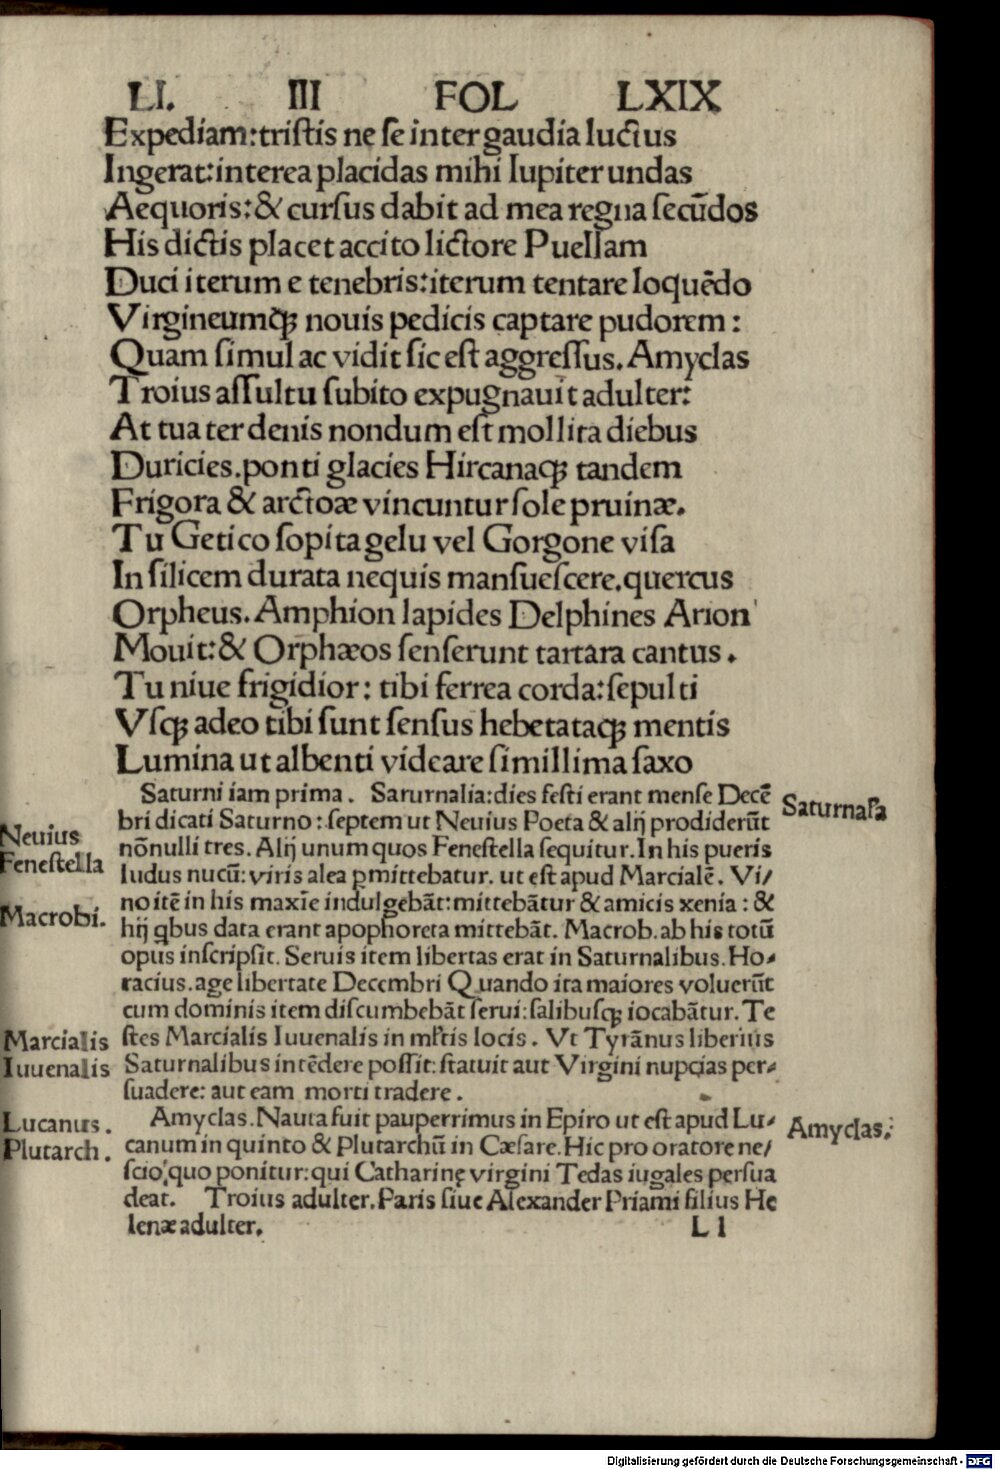 LI. III FOL LXIX
Expediam:tristis ne se inter gaudia luctus
Ingerat:interea placidas mihi Iupiter undas
Aequoris:& cursus dabit ad mea regna secūdos
His dictis placet accito lictore Puellam
Duci iterum e tenebris:iterum tentare loquēdo
Virgineumq; nouis pedicis captare pudorem:
Quam simul ac vidit sic est aggressus.Amyclas
Troius assultu subito expugnauit adulter:
At tua ter denis nondum est mollita diebus
Duricies.ponti glacies Hircanaq; tandem
Frigora & arctoæ vincuntur sole pruinæ.
Tu Getico sopita gelu vel Gorgone visa
In silicem durata nequis mansuescere.quercus
Orpheus.Amphion lapides Delphines Arion
Mouit:& Orphæos senserunt tartara cantus.
Tu niue frigidior: tibi ferrea corda:sepulti
Vsq; adeo tibi sunt sensus hebetataq; mentis
Lumina ut albenti videare simillima saxo
Saturni iam prima. Saturnalia:dies festi erant mense Decē
bri dicati Saturno:septem ut Neuius Poeta & alij prodiderūt
nōnulli tres. Alij unum quos Fenestella sequitur.In his pueris
ludus nucū: viris alea ꝑmittebatur. ut est apud Marcialē. Vi/
no itē in his maxīe indulgebāt:mittebātur & amicis xenia: &
hij qbus data erant apophoreta mittebāt. Macrob.ab his totū
opus inscripsit. Seruis item libertas erat in Saturnalibus.Ho-
racius.age libertate Decembri Quando ita maiores voluerūt
cum dominis item discumbebāt serui:salibusq; iocabātur. Te
stes Marcialis Iuuenalis in mltis locis. Vt Tyrānus liberius
Saturnalibus intēdere possit:statuit aut Virgini nupcias per-
suadere: aut eam morti tradere.
Amyclas.Nauta fuit pauperrimus in Epiro ut est apud Lu-
canum in quinto & Plutarchū in Cæsare.Hic pro oratore ne/
scio quo ponitur:qui Catharinę virgini Tedas iugales persua
deat. Troius adulter.Paris siue Alexander Priami filius He
lenæ adulter. L l
Saturnalia
Neuius
Fenestella
Macrobi.
Marcialis
Iuuenalis
Lucanus.
Plutarch.
Amyclas.
Digitalisierung gefördert durch die Deutsche Forschungsgemeinschaft - DFG